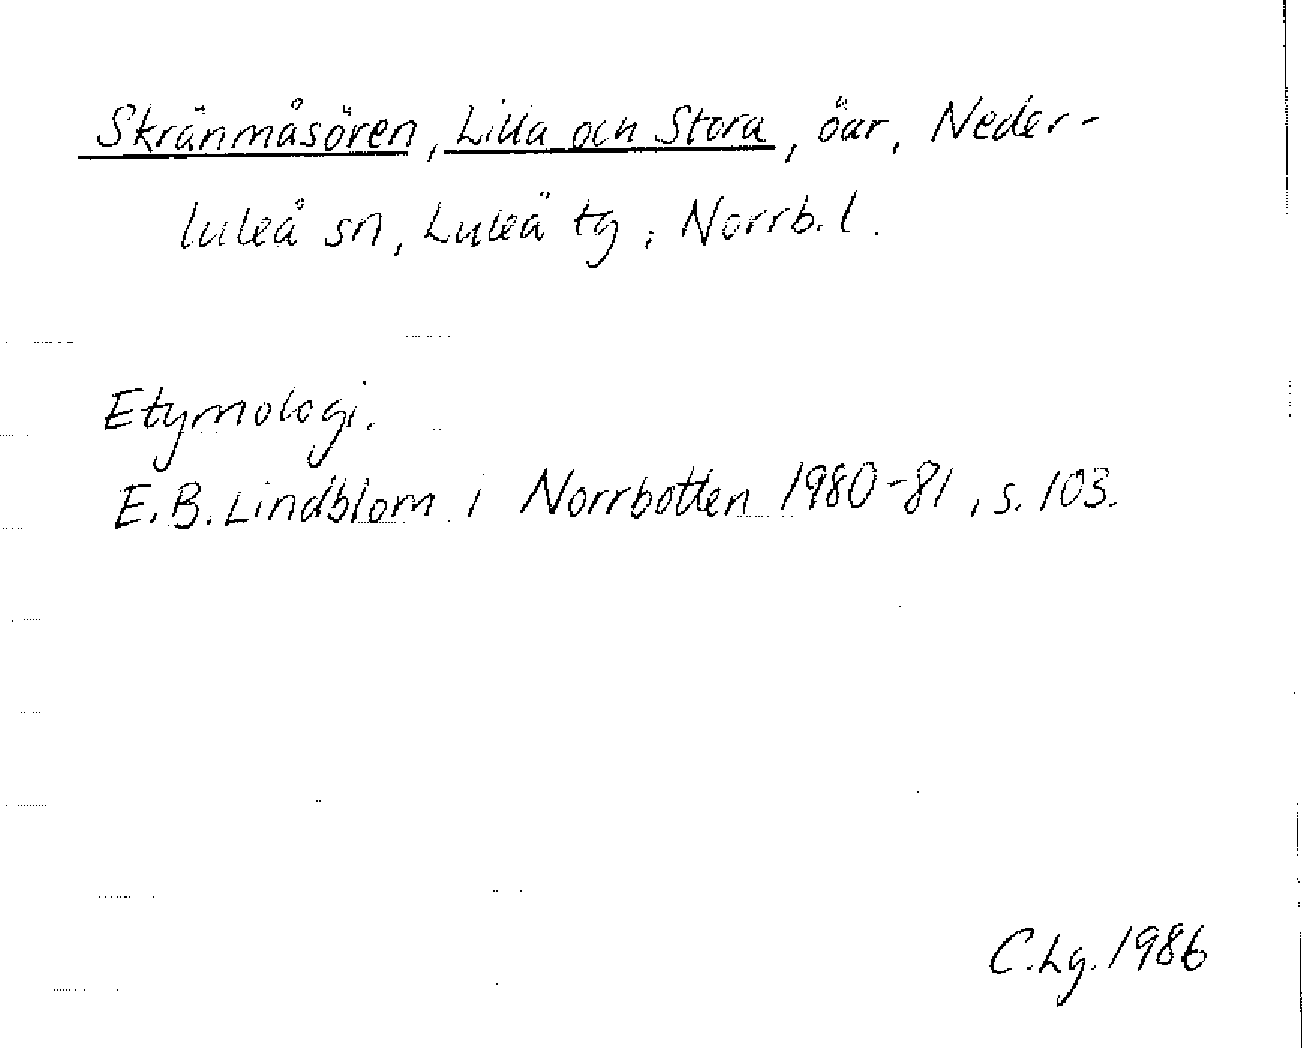 Skränmåsören, Lilla och Stora, öar, Neder-
luleå sn, Luleå tg, Norrb. l.
Etymologi.
E. B. Lindblom i Norrbotten 1980-81, s. 103.
C. Lg. 1986